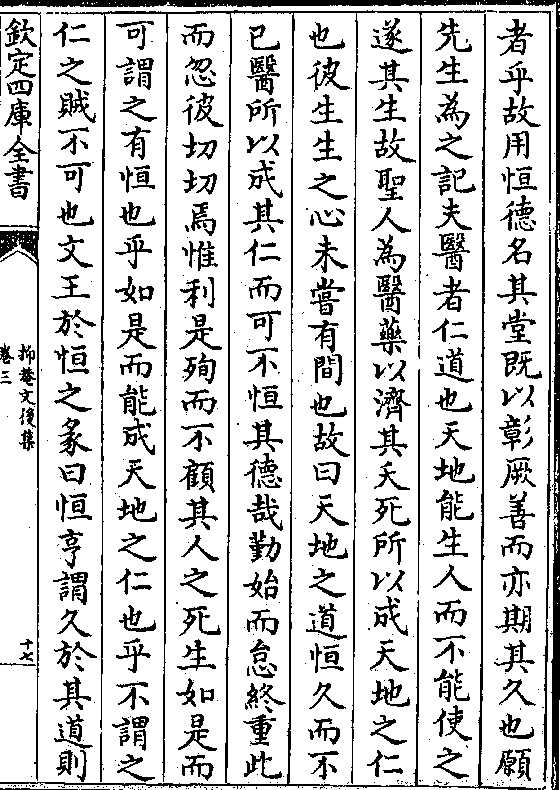 者乎故用恒德名其堂既以彰厥善而亦期其久也願
先生為之記夫醫者仁道也天地能生人而不能使之
遂其生故聖人為醫藥以濟其夭死所以成天地之仁
也彼生生之心未嘗有間也故曰天地之道恒久而不
已醫所以成其仁而可不恒其德哉勤始而怠終重此
而忽彼切切焉惟利是殉而不顧其人之死生如是而
可謂之有恒也乎如是而能成天地之仁也乎不謂之
仁之賊不可也文王於恒之彖曰恒亨謂久於其道則
欽定四庫全書
抑菴文後集
卷三
十七